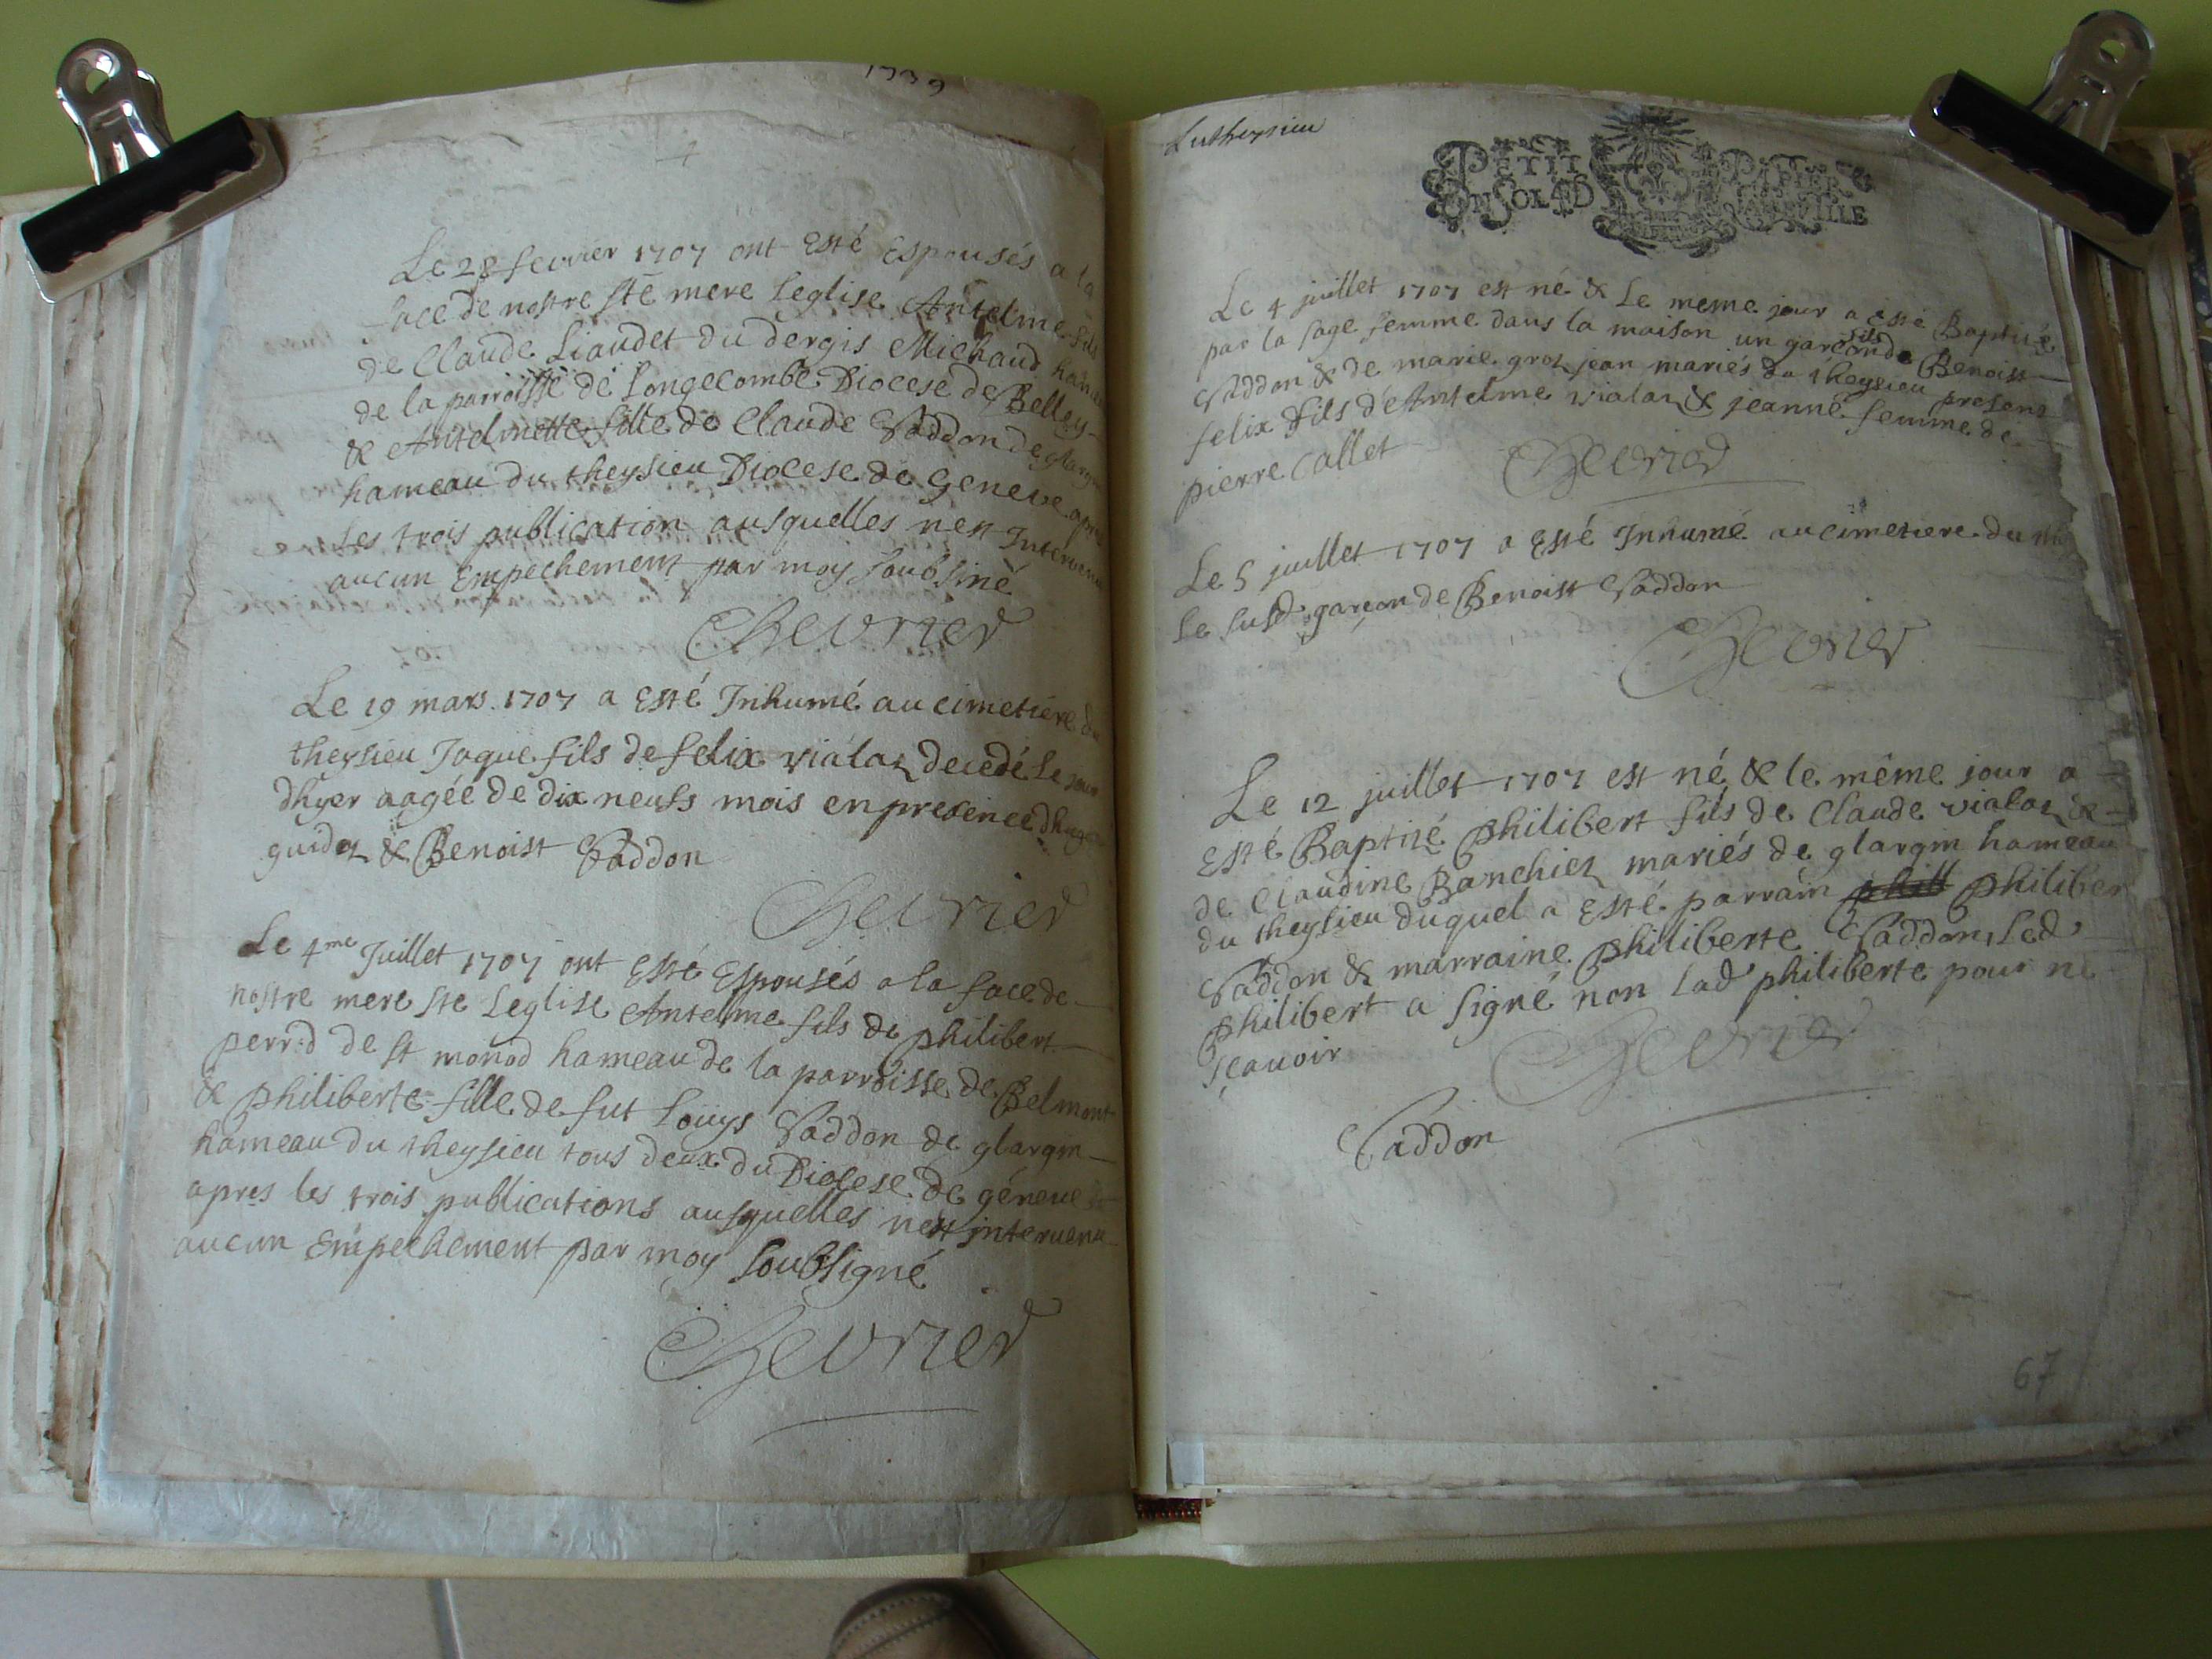 1739
Le 28 fevrier 1707 ont esté espousés a la
face de nostre ste mere Leglise Antelme fils
de Claude Liaudet du dergis Michaud hameau
de la parroisse de Longecombe Diocese de Belley
& Antelmette fille de Claude Saddon de glargin
hameau du theysieu Diocese de Geneve apres
les trois publication ausquelles nest Intervenu
aucun Empechement par moy soubsiné
Chevrier
Le 19 mars 1707 a esté Inhumé au cimetiere du
theysieu Jaque fils de felix vialaz decedé le jour
dhyer aagée de dix neufs mois en presence
guidoz & Benoist Saddon
Chevrier
Le 4me Juillet 1707 ont esté Espousés a la face de
nostre mere ste Leglise Antelme fils de philibert
de st monod hameau de la parroisse de Belmont
& philiberte fille de fut Louys Saddon de glargin
hameau du theysieu tous deux du Diocese de géneve
apres les trois publications ausquelles nest intervenu
aucun Empechement par moy soubsigné
Chevrier
Lutheysieu
PETIT PAPIER
UN SOL 4 D LA FEVILLE
Le 4 juillet 1707 est né & le meme jour a esté Baptisé
par la sage femme dans la maison un garcon fils de Benoist
Saddon & de marie groz jean mariés du theysieu presens
felix fils d'Antelme vialaz & jeanne femme de
pierre Callet
Chevrier
Le 5 juillet 1707 a esté Inhumé au cimetiere du th
le susd garçon de Benoist Saddon
Chevrier
Le 12 juillet 1707 est né & le même jour a
esté Baptizé philibert fils de Claude vialaz &
de Claudine Banchiez mariés de glargin hameau
du theysieu duquel a esté parrain phill philiber
Saddon & marraine philiberte Saddon, Led
philibert a signé non lad philiberte pour ne
sçavoir
Chevrier
Saddon
67